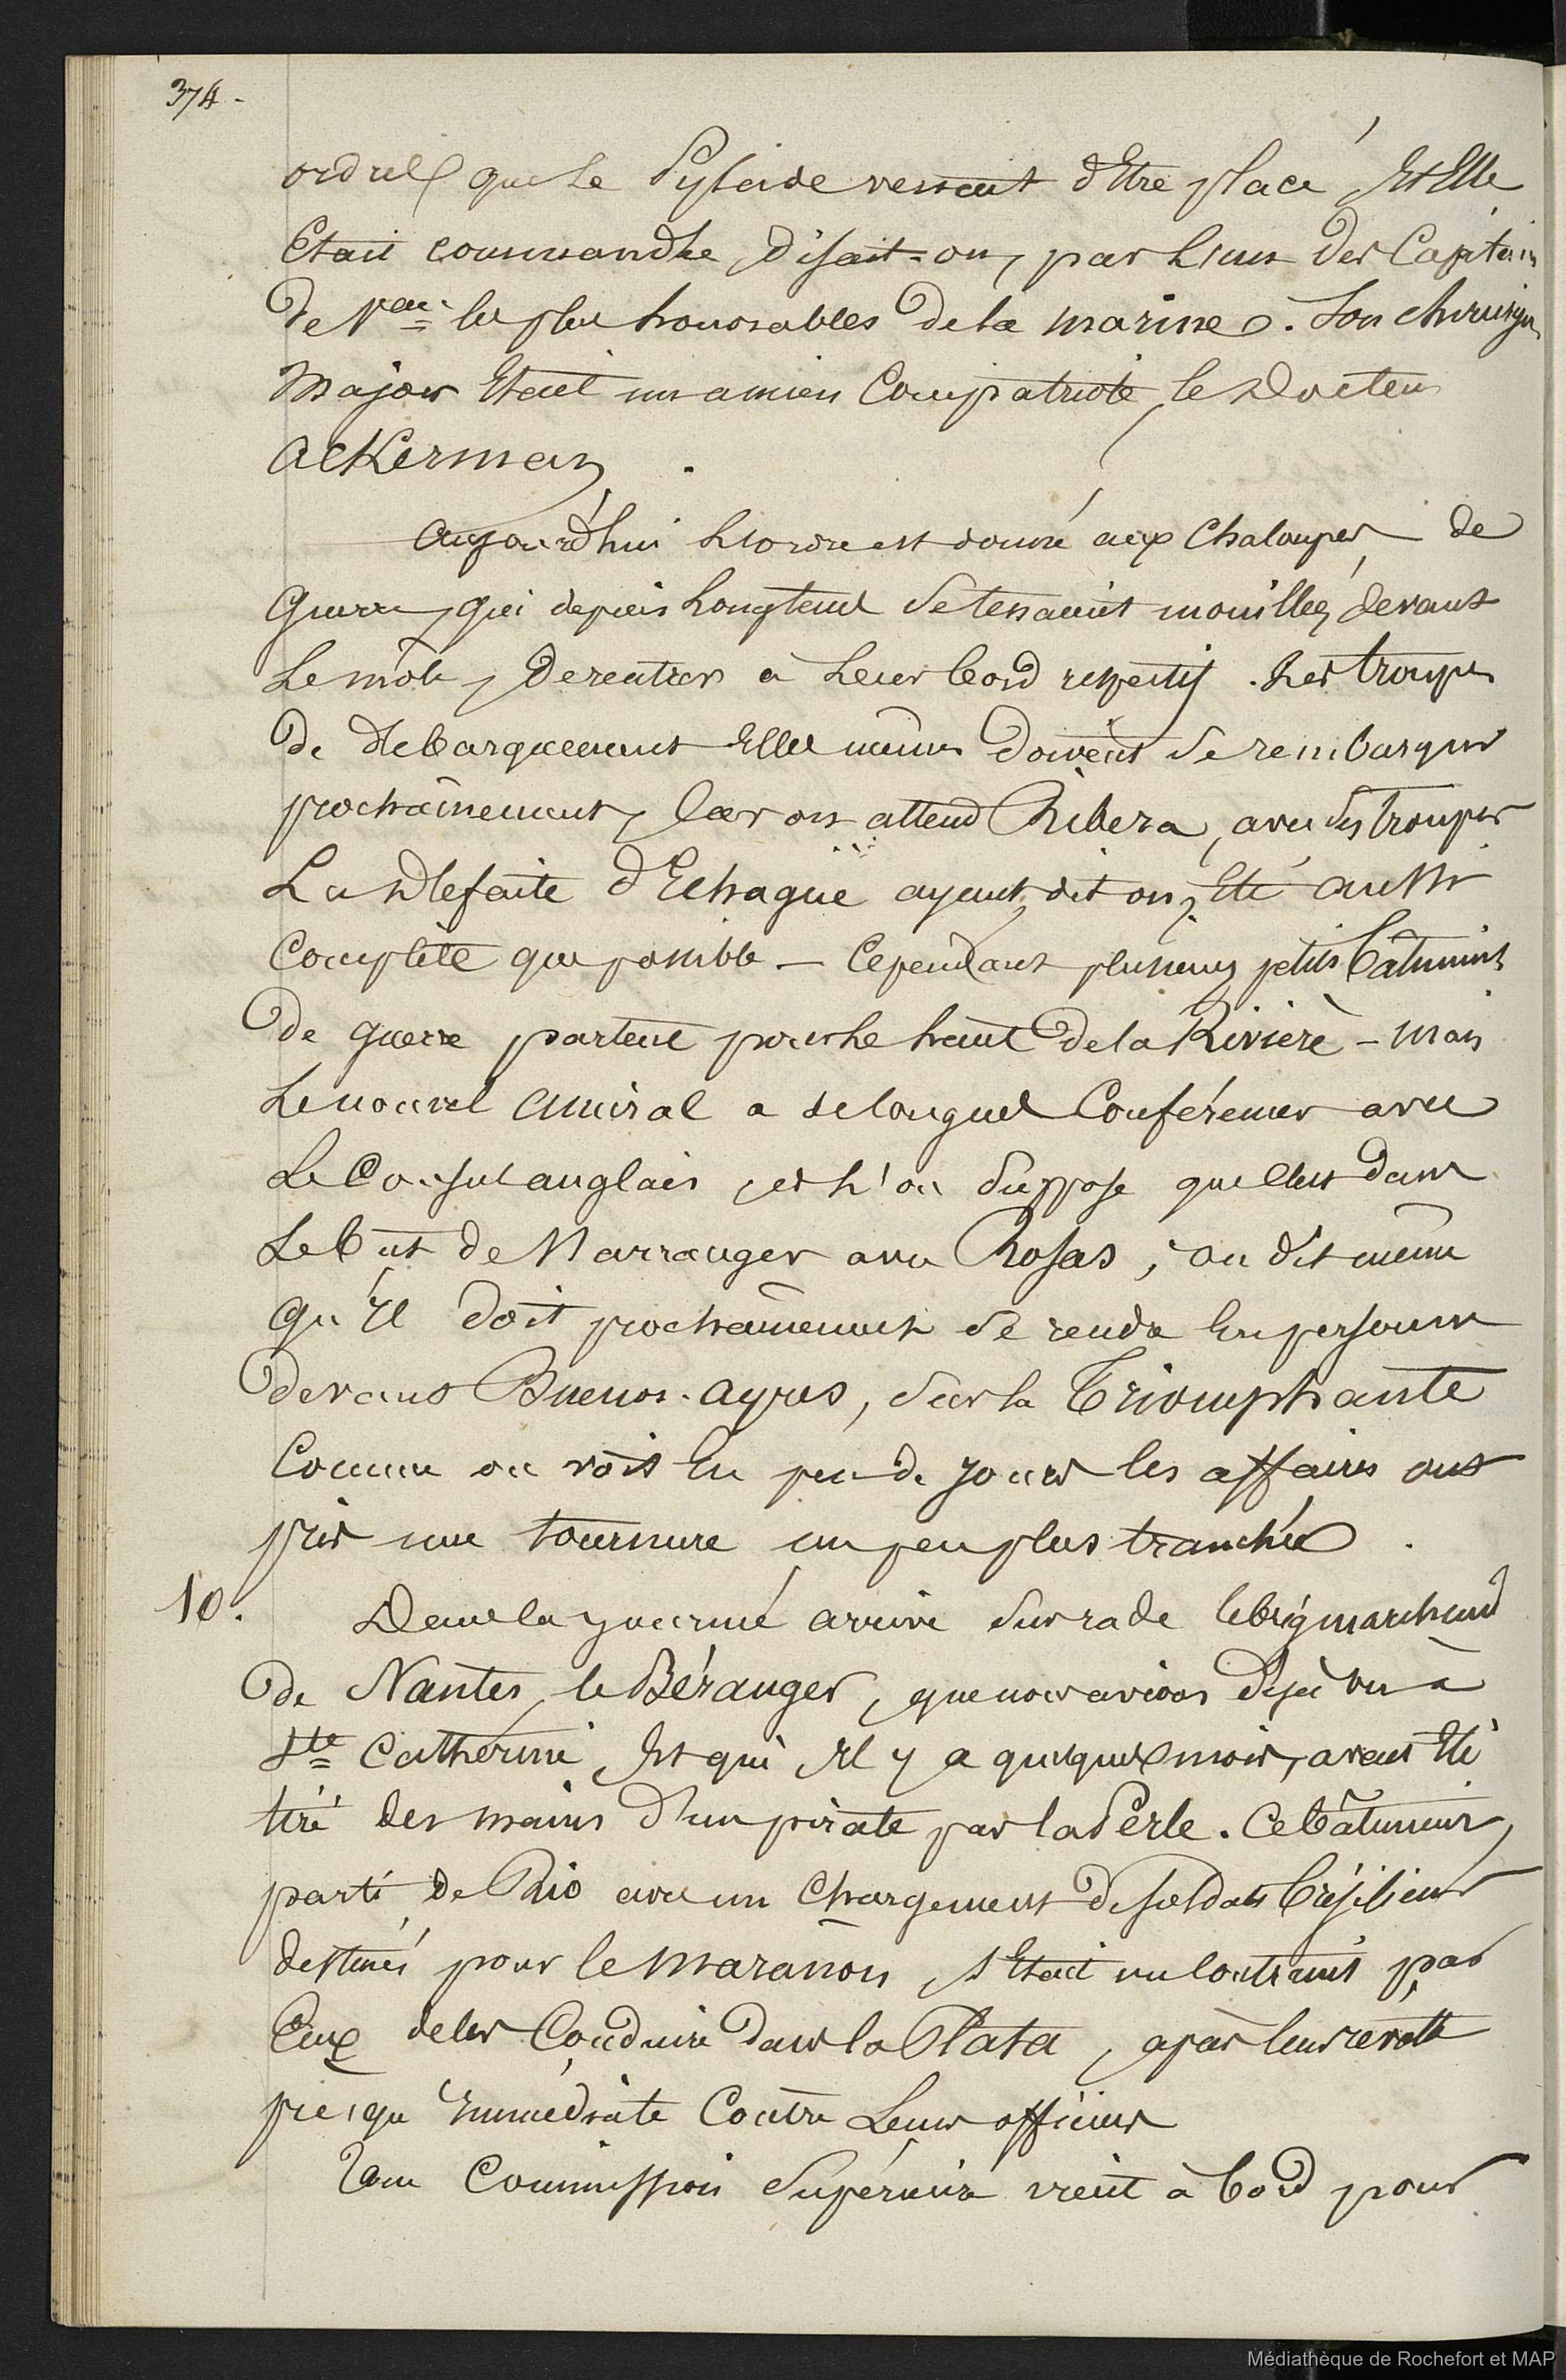 374 -
ordres que le Pylade venait d'Etre placé, Et Elle
Etait commandée, disait-on, par l'un des Capitain
de Veau les plus honorables de la marine. Son chirurgn
Major Etait un ancien Compatriote, le Docteur
Ackerman.
Aujourd'hui l'ordre est donné aux Chaloupes de
Guerre, qui depuis longtems se tenaient mouillées devant
le môle, de rentrer à leur bord respectif. Les troupes
de débarquement Elles mêmes doivent se rembarquer
prochainement, Car on attend Ribera, avec ses troupes
La Défaite d'Echague ayant, dit on, Eté aussi
Complète que possible - Cependant plusieurs petits bâtiments
de guerre partent pour le haut de la Rivière - mais
le nouvel Amiral a de longues Conférences avec
le Consul anglais, et l'on suppose que c'est dans
le but de s'arranger avec Rosas ; on dit même
qu'Il doit prochainement se rendre En personne
devant Buenos-ayres, sur la Triomphante
Comme on voit En peu de jours les affaires ont
pris une tournure un peu plus tranchée.
10. Dans la journée arrive sur rade le brig marchand
de Nantes, le Béranger, que nous avions déjà vu à
Ste Catherine, Et qui Il y a quelques mois, avait Eté
tiré des mains d'un pirate par la Perle. Ce bâtiment,
parti de Rio avec un Chargement de soldats brésiliens
destinés pour le Maranon, s'Etait vu contraint par
Eux de les Conduire dans la Plata, après leur révolte
presqu'Immédiate Contre Leurs officiers
Une Commission Supérieure vient à bord pour
Médiathèque de Rochefort et MAP